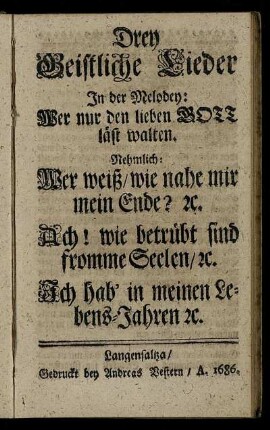 Drey
Geistliche Lieder
In der Melodey:
Wer nur den lieben GOTT
läst walten.
Nehmlich:
Wer weiß/ wie nahe mir
mein Ende? ꝛc.
Ach! wie betrübt sind
fromme Seelen/ ꝛc.
Ich hab' in meinen Le-
bens-Jahren ꝛc.
Langensaltza/
Gedruckt bey Andreas Vestern/ A. 1686.